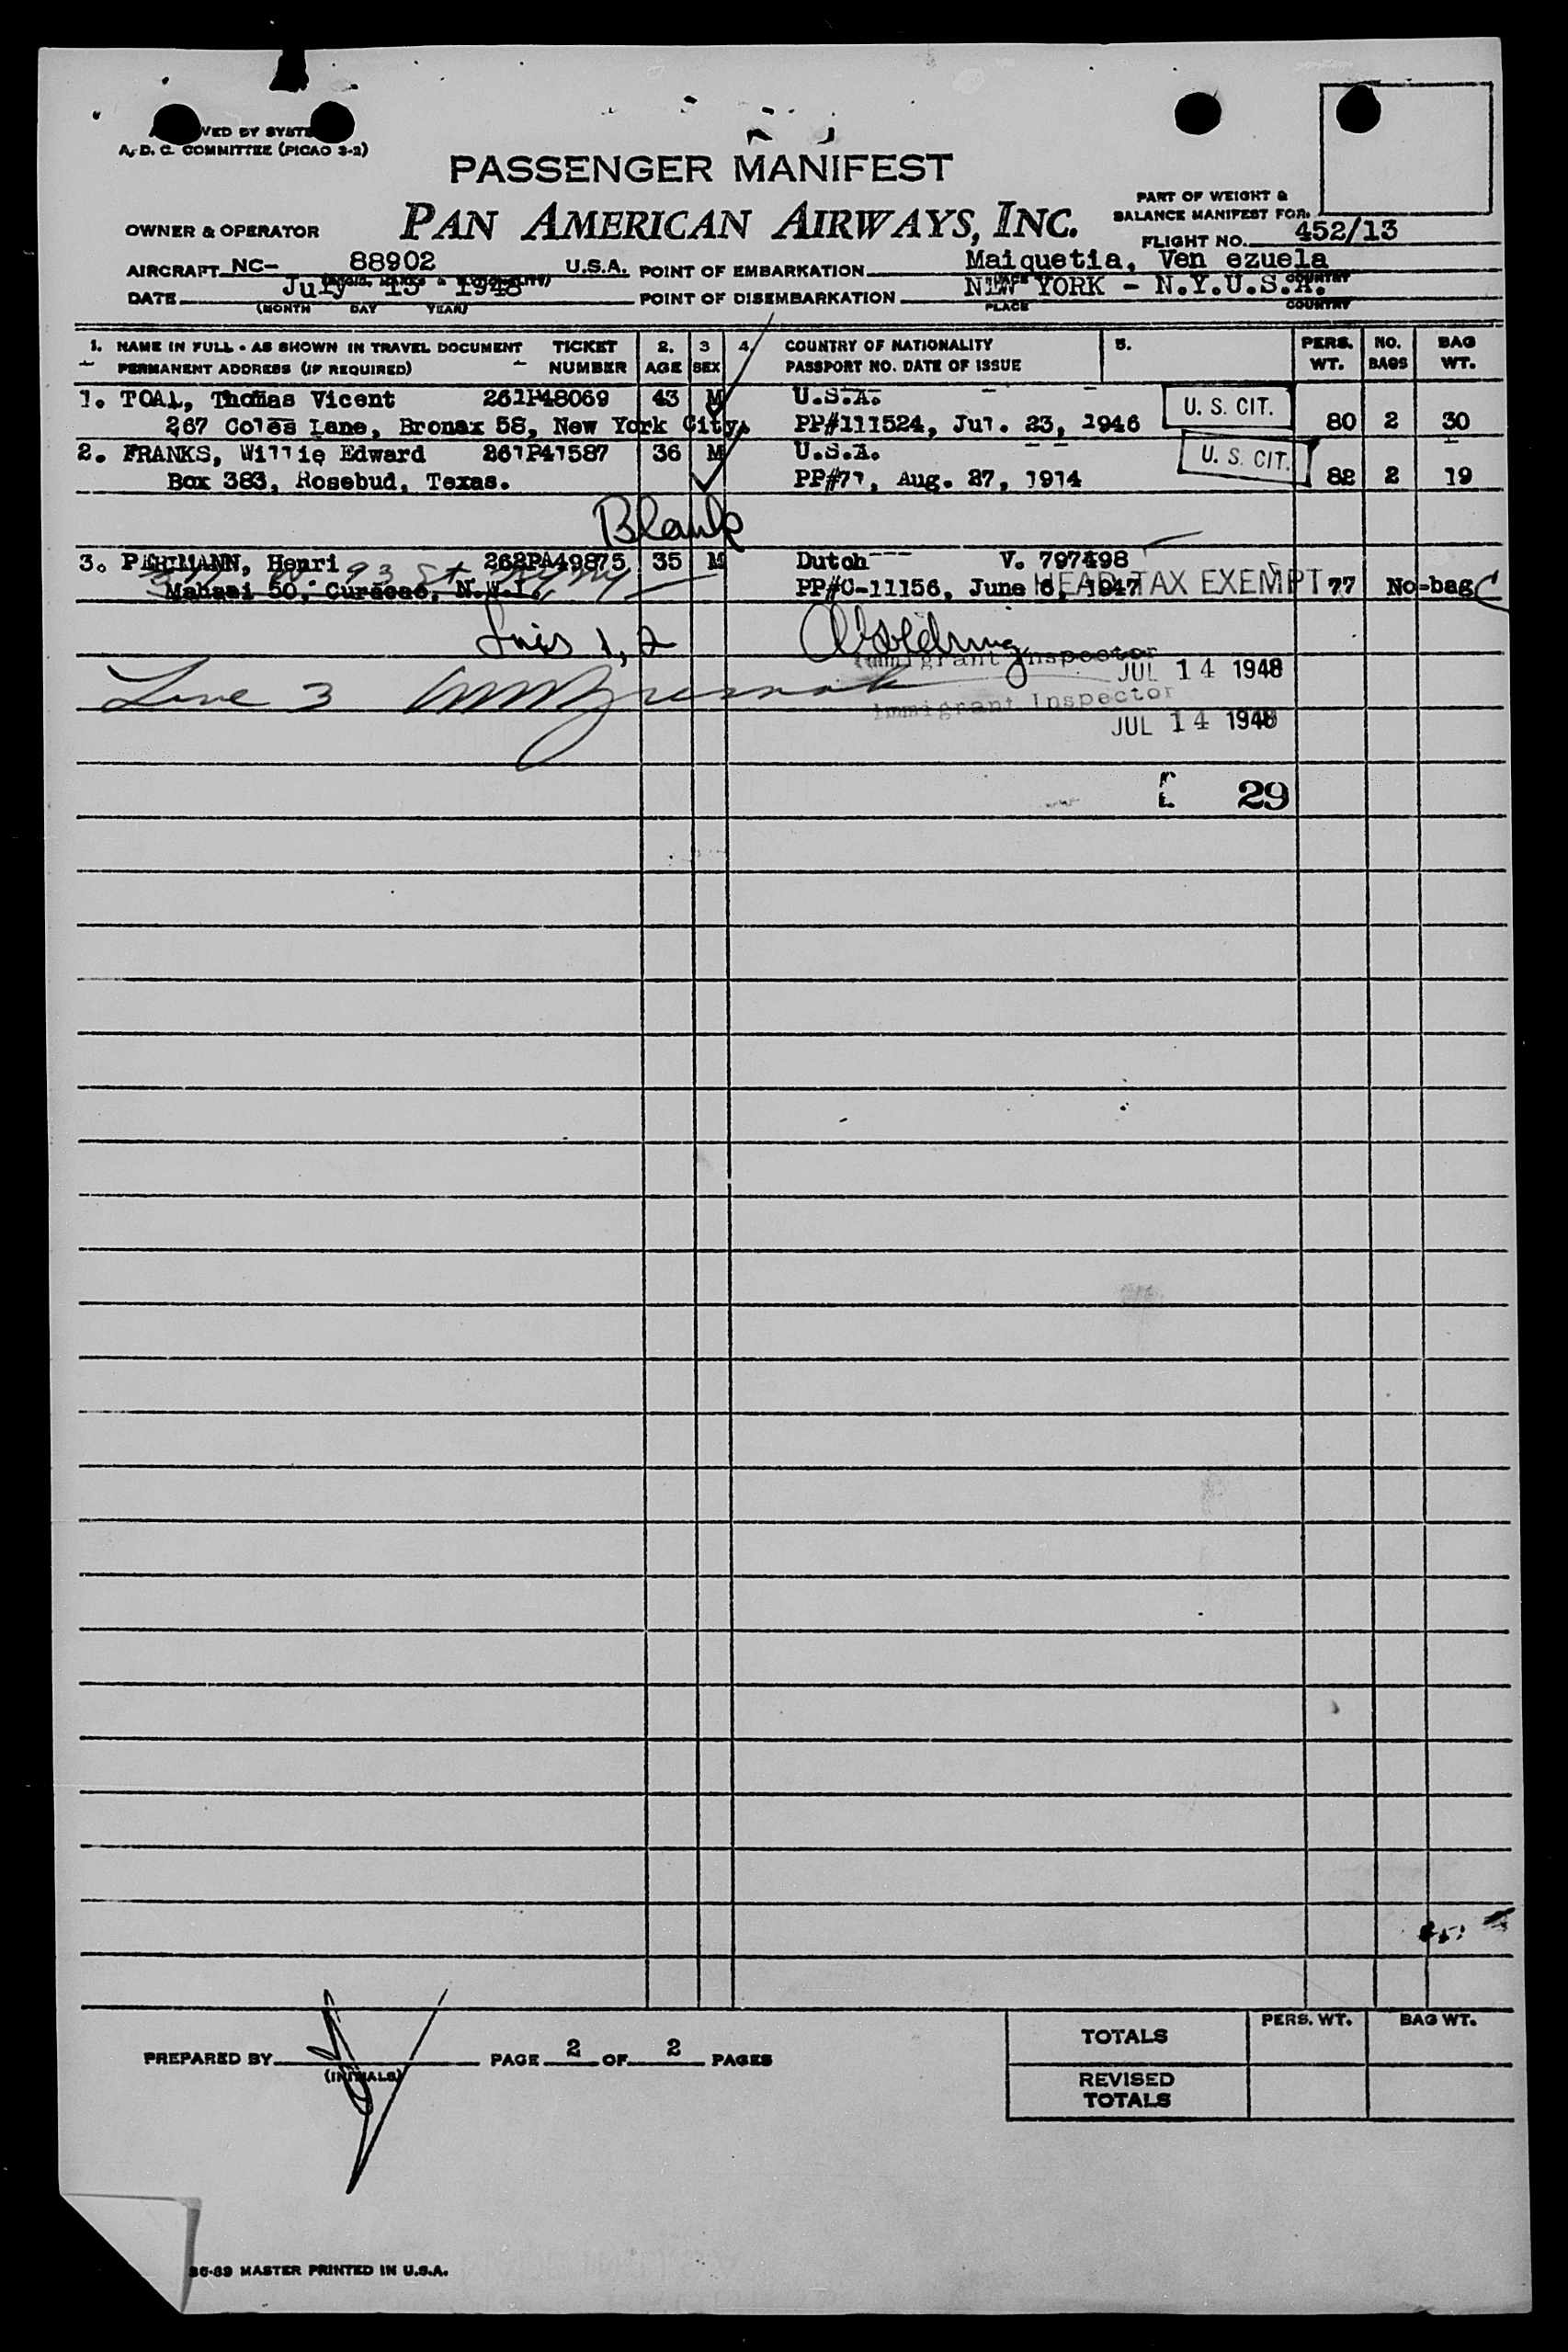 VED BY SYSTE
A. D. C. COMMITTEE (PICAO 3-2)
PASSENGER MANIFEST
PART OF WEIGHT &
BALANCE MANIFEST FOR
OWNER & OPERATOR PAN AMERICAN AIRWAYS, INC.
FLIGHT NO. 452/13
AIRCRAFT NC- 88902 U.S.A. POINT OF EMBARKATION Maiquetia, Ven ezuela
DATE July 13 - 1948 POINT OF DISEMBARKATION NEW YORK - N.Y.U.S.A.
(MONTH DAY YEAR) PLACE COUNTRY
1. NAME IN FULL - AS SHOWN IN TRAVEL DOCUMENT TICKET 2. 3 4. COUNTRY OF NATIONALITY 5. PERS. NO. BAG
PERMANENT ADDRESS (IF REQUIRED) NUMBER AGE SEX PASSPORT NO. DATE OF ISSUE WT. BAGS WT.
1. TOAL, Thomas Vicent 261P48069 43 M U.S.A. U. S. CIT.
267 Coles Lane, Bronax 58, New York City. PP#111524, Jul. 23, 1946 80 2 30
2. FRANKS, Willie Edward 261P41587 36 M U.S.A. U. S. CIT.
Box 383, Rosebud, Texas. PP#71, Aug. 27, 1914 82 2 19
Blank
3. Henri 262PA49875 35 M Dutch V. 797498
50, Curacao, N.W.I. PP#C-11156, June 6, 1947 HEAD TAX EXEMPT 77 No-bag
93 St
1, 2
Immigrant Inspector
JUL 14 1948
Line 3
Immigrant Inspector
JUL 14 1948
29
PREPARED BY (INITIALS) PAGE 2 OF 2 PAGES
TOTALS PERS. WT. BAG WT.
REVISED
TOTALS
MASTER PRINTED IN U.S.A.